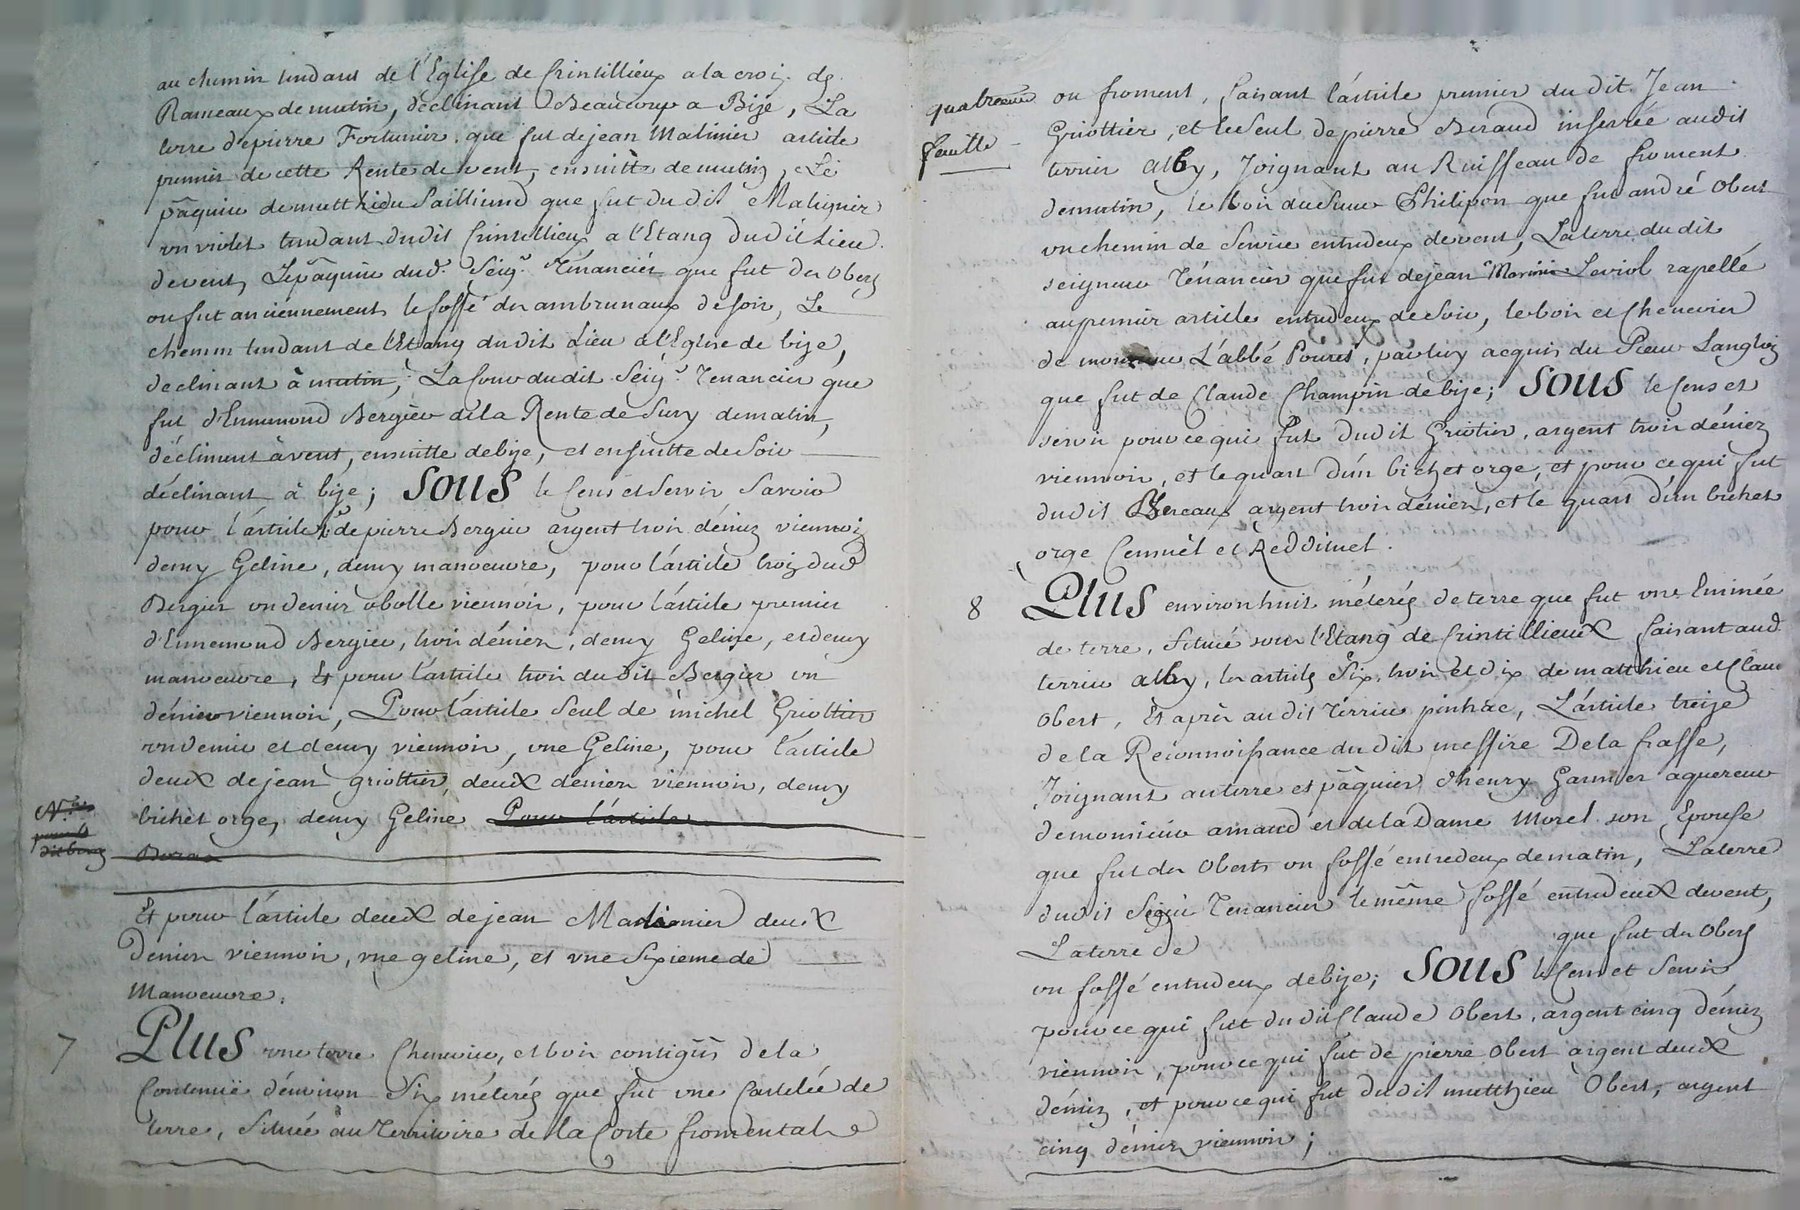 au chemin tendant de l'Eglise de Crintillieux a la croix de
Rameaux de matin, déclinant Beaucoup a Bize, La
terre de pierre Fortunier que fut de jean Malinier article
premier de cette Rente de vent, ensuitte de matin, Le
pâquier de matthieu Sailliand que fut du dit Malignier
un violet tendant dudit Crintellieux a l'Etang dudit Lieu
de vent, Le pâquier dud. Seig.r Ténancier que fut des Oberts
ou fut anciennement le fossé des ambrunaux de soir, Le
chemin tendant de l'Etang dudit Lieu a l'Eglise de bize,
declinant à matin, La dudit Seig.r Tenancier que
fut d'Ennemond Bergier de la Rente de Sury de matin,
déclinant à vent, ensuitte de bize, et ensuitte de Soir
déclinant à bize; SOUS le Cens et Servis Savoir
pour l'article de pierre Bergier argent trois déniez viennoiz
demy Geline, demy manoeuvre, pour l'article troiz dud
Bergier un denier obolle viennois, pour l'article premier
d'Ennemond Bergier, trois dénier, demy Geline, et demy
manoeuvre, Et pour l'article trois du Dit Bergier un
dénier viennois, Pour l'article Seul de michel Griottier
un denier et demy viennois, une Geline, pour l'article
deux de jean griottier, deux deniers viennois, demy
bichet orge, demy Geline Pour l'article
Et pour l'article deux de jean Malinier deux
Deniers viennois, une geline, et une Sixieme de
Manoeuvre.
7 PLUS une terre Cheneviere, et bois contigüs de la
Contenüe d'environ Six méterés que fut une Cartelée de
terre, Située au Territoire de la Coste fromentale
quatreieme
feuille
ou froment, faisant l'article premier du dit Jean
Griottier, et le Seul de pierre Beraud inserrée audit
terrier alby, Joignant au Ruisseau de froment
de matin, le bois du Sieur Philipon que fut andré Obert
un chemin de Service entredeux de vent, La terre du dit
seigneur Ténancier que fut de jean Leviol rapellé
au premier article entredeux de Soir, le bois et Chenevier
de L'abbé, par luy acquis du Sieur Langloiz
que fut de Claude Champin de bize; SOUS le Cens et
servis pour ce qui fut dudit Griotier, argent trois déniez
viennois, et le quart d'un bichet orge, et pour ce qui fut
dudit Bereaux argent trois dénier, et le quart d'un bichet
orge Cennuel et Reddituel.
8 PLUS environ huit méterés de terre que fut une Eminée
de terre, Située sous l'Etang de Crintillieux faisant aud.
terrier alby, les articles Six, trois et dix de matthieu et Claude
Obert, Et après au dit Terrier pinhac, L'article treize
de la Reconnoissance du dit messire De la frasse,
Joignant au terre et pâquier d'henry Garnier aquereur
de monsieur amand et de la Dame Morel son Epouse
que fut des Oberts un fossé entredeux de matin, La terre
du dit Seig.r Tenancier le même fossé entredeux de vent,
La terre de que fut des Oberts
un fossé entredeux de bize; SOUS le Cens et Servis
pour ce qui fut dudit Claude Obert, argent cinq déniez
viennois, pour ce qui fut de pierre Obert argent deux
déniez, et pour ce qui fut dudit matthieu Obert, argent
cinq dénier viennois;